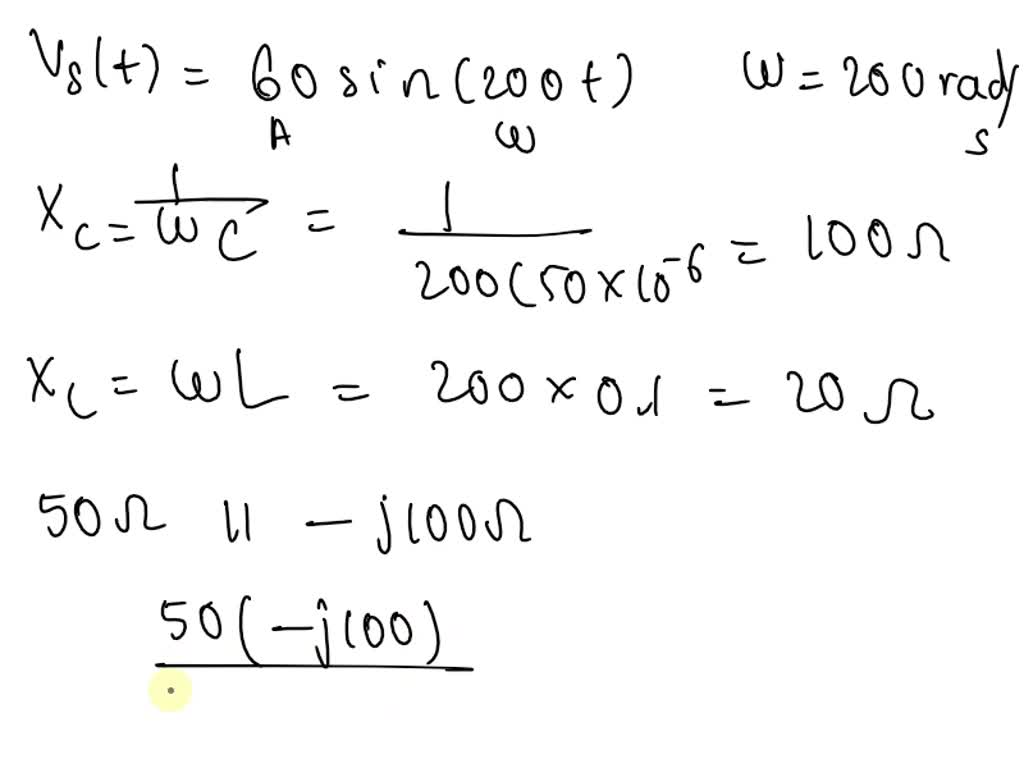 Vs(t) = 60 sin(200t) ω = 200 rad/s
A ω
Xc = 1/ωC = 1/200(50×10^-6 = 100Ω
XL = ωL = 200 × 0.1 = 20Ω
50Ω || -j100Ω
50(-j100)